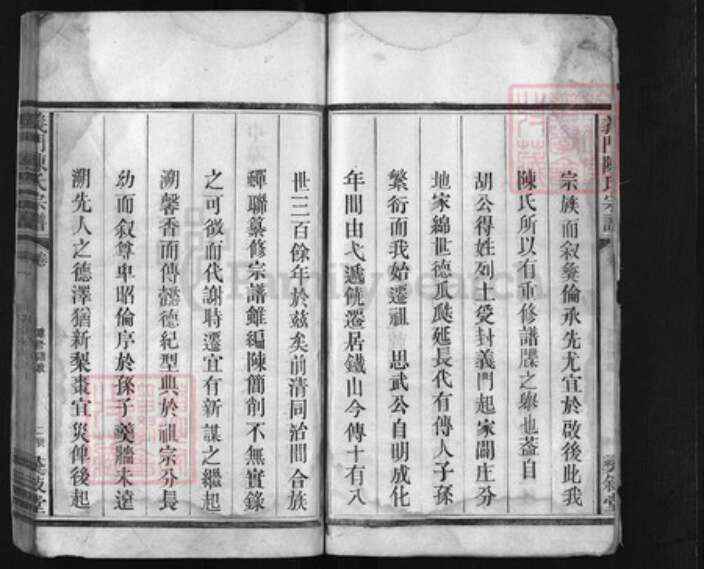 義門陳氏宗譜
宗族而叙彝倫承先尤宜於啟後此我
陳氏所以有重修譜牒之舉也葢自
胡公得姓列土受封義門起家闢庄分
地家綿世德瓜瓞延長代有傳人子孫
繁衍而我始遷祖 思武公自明成化
年間由弋遞饒遷居鐵山今傳十有八
世三百餘年於兹矣前清同治間合族
聯纂修宗譜雖編陳簡削不無實錄
之可徵而代謝時遷宜有新謀之繼起
溯馨香而傳懿德紀型典於祖宗分長
幼而叙尊卑昭倫序於孫子羹牆未遠
溯先人之德澤猶新梨棗宜災俾後起
義門陳氏宗譜
卷
FamilySearch